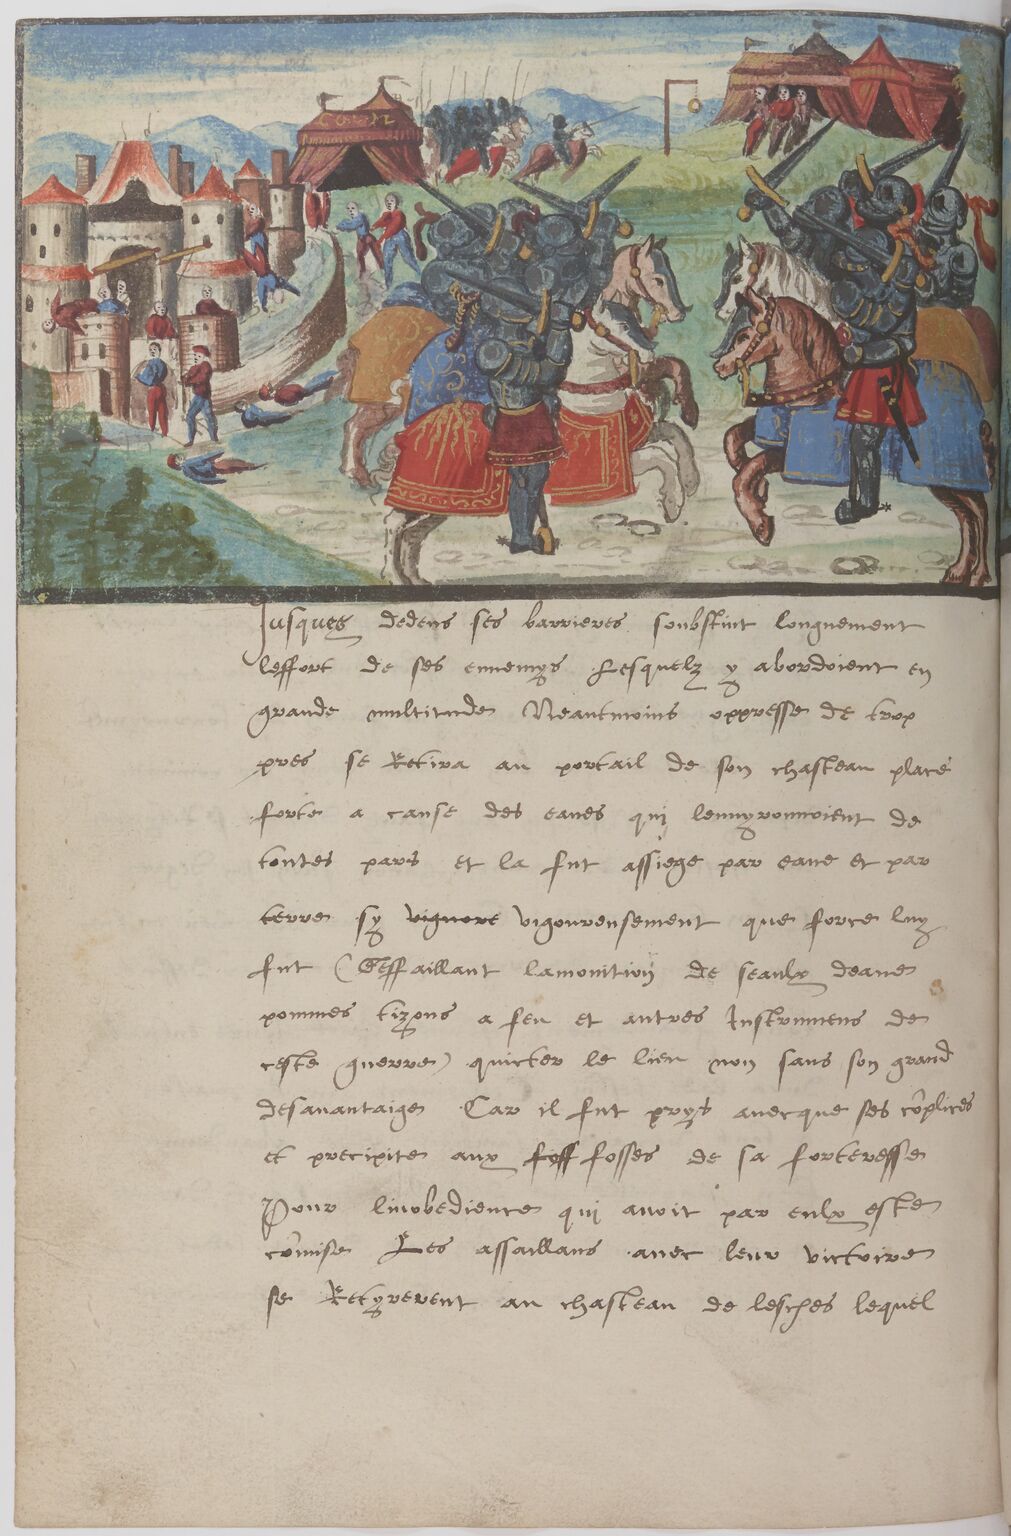 Jusques dedens ses barrieres soubstint longuement
leffort de ses ennemys Lesquelz y abordoient en
grande multitude Neantmoins oppresse de trop
pres se Retira au portail de son chasteau place
forte a cause des eaues qui lenuyronnoient de
toutes pars et la fut assiege par eaue et par
terre sy vigoureusement que force luy
fut (Deffaillant lamonition de seaulx deaue
pommes tizons a feu et autres Instrumens de
ceste guerre) quicter le lieu non sans son grand
desauantaige Car il fut prys auecque ses cõplices
et precipite aux fosses de sa forteresse
Pour linobedience qui auoit par eulx este
cõmise Les assaillans auec leur victoire
se Retyrerent au chasteau de lesches lequel